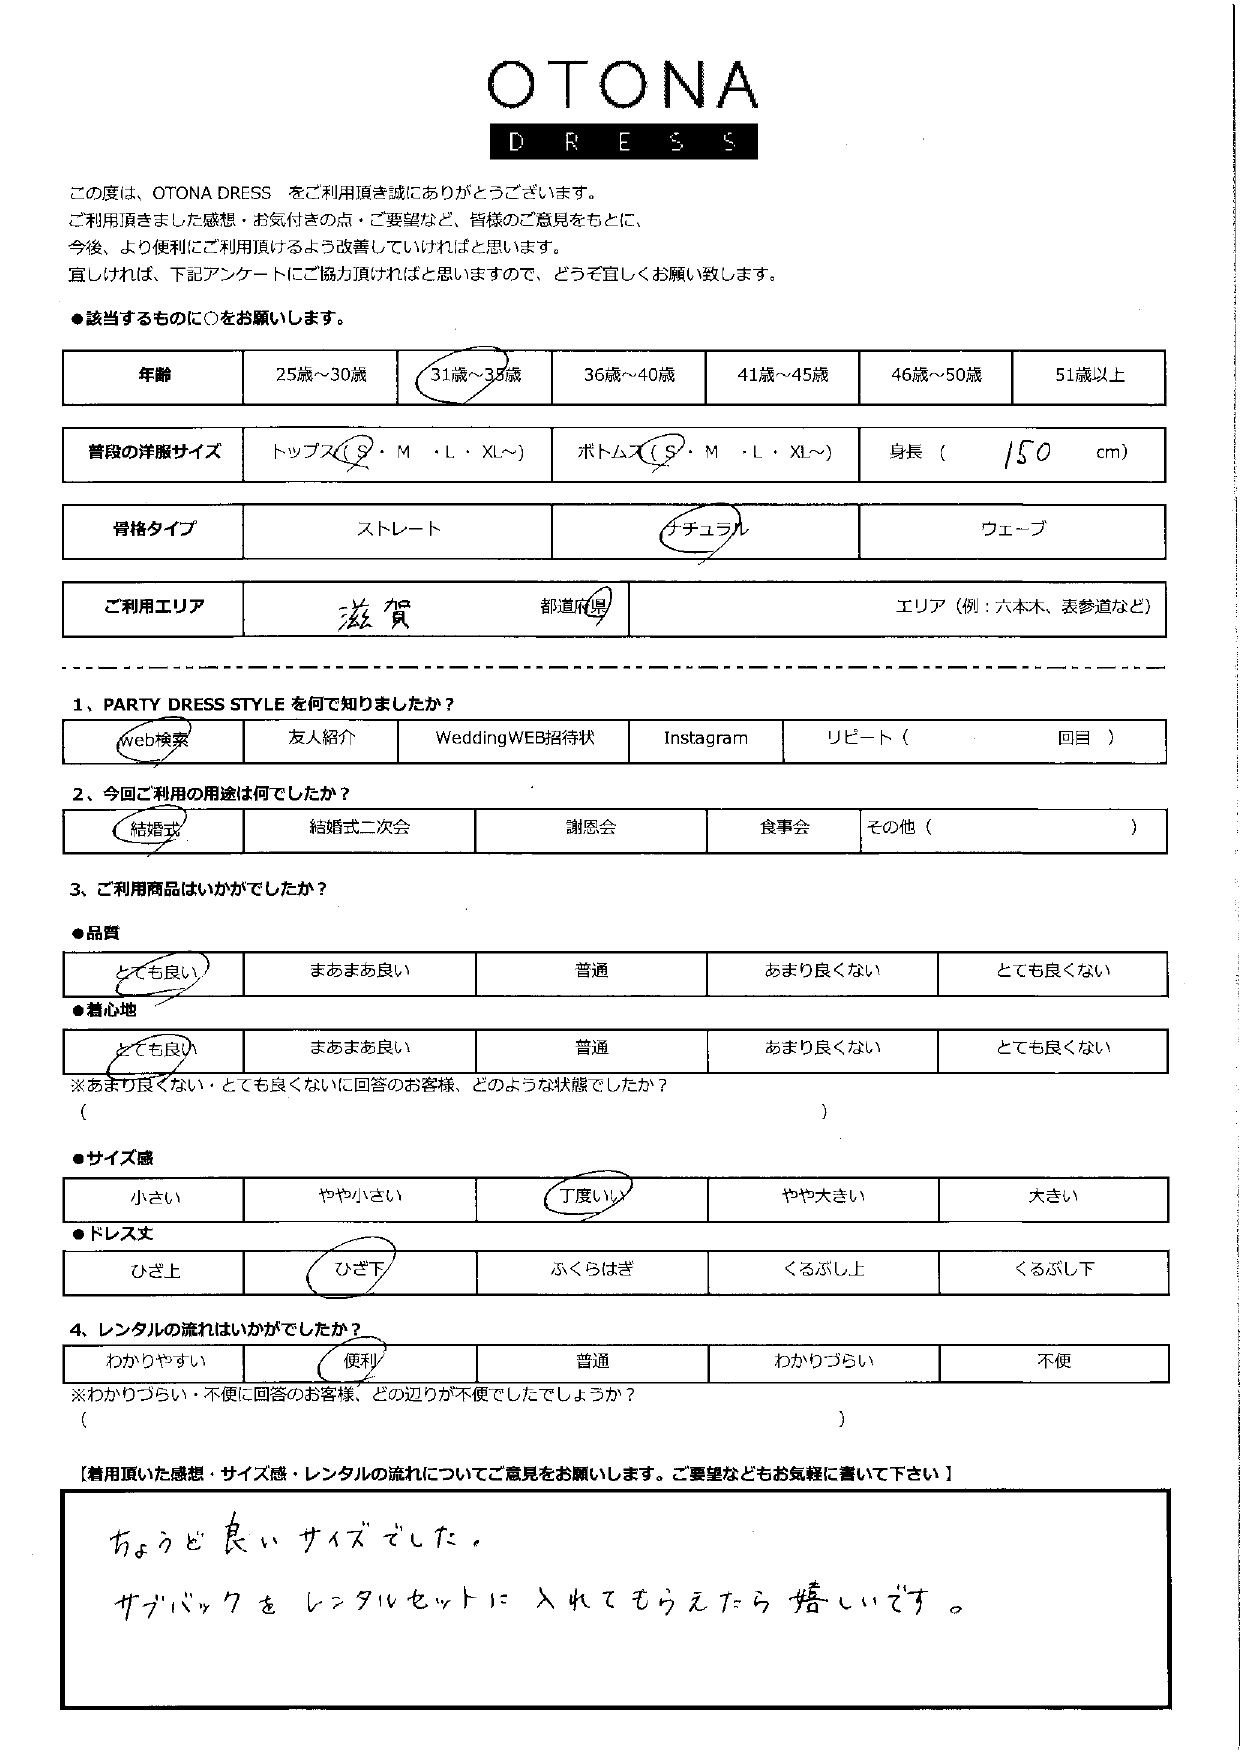 OTONA
DRESS
この度は、OTONA DRESS をご利用頂き誠にありがとうございます。
ご利用頂きました感想・お気付きの点・ご要望など、皆様のご意見をもとに、
今後、より便利にご利用頂けるよう改善していければと思います。
宜しければ、下記アンケートにご協力頂ければと思いますので、どうぞ宜しくお願い致します。
●該当するものに○をお願いします。
年齢 25歳～30歳 31歳～35歳 36歳～40歳 41歳～45歳 46歳～50歳 51歳以上
普段の洋服サイズ トップス( S ・ M ・L ・ XL～) ボトムス( S ・ M ・L ・ XL～) 身長 ( 150 cm)
骨格タイプ ストレート ナチュラル ウェーブ
ご利用エリア 滋賀 都道府県 エリア（例：六本木、表参道など）
1、PARTY DRESS STYLE を何で知りましたか？
web検索 友人紹介 WeddingWEB招待状 Instagram リピート（ 回目 ）
2、今回ご利用の用途は何でしたか？
結婚式 結婚式二次会 謝恩会 食事会 その他（ ）
3、ご利用商品はいかがでしたか？
●品質
とても良い まあまあ良い 普通 あまり良くない とても良くない
●着心地
とても良い まあまあ良い 普通 あまり良くない とても良くない
※あまり良くない・とても良くないに回答のお客様、どのような状態でしたか？
（ ）
●サイズ感
小さい やや小さい 丁度いい やや大きい 大きい
●ドレス丈
ひざ上 ひざ下 ふくらはぎ くるぶし上 くるぶし下
4、レンタルの流れはいかがでしたか？
わかりやすい 便利 普通 わかりづらい 不便
※わかりづらい・不便に回答のお客様、どの辺りが不便でしたでしょうか？
（ ）
【着用頂いた感想・サイズ感・レンタルの流れについてご意見をお願いします。ご要望などもお気軽に書いて下さい 】
ちょうど良いサイズでした。
サブバックをレンタルセットに入れてもらえたら嬉しいです。